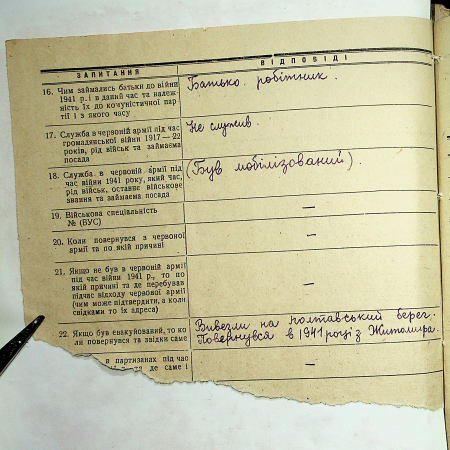 ЗАПИТАННЯ
ВІДПОВІДІ
16. Чим займались батьки до війни
1941 р. і в даний час та належ-
ність їх до комуністичної пар-
тії і з якого часу
Батько робітник.
17. Служба в червоній армії під час
громадянської війни 1917—22
років, рід військ та займаєма
посада
Не служив.
18. Служба в червоній армії під
час війни 1941 року, який час,
рід військ, останнє військове
звання та займаєма посада
(Був мобілізований).
19. Військова спеціальність
№ (ВУС)
—
20. Коли повернувся з червоної
армії та по якій причині
—
21. Якщо не був в червоній армії
під час війни 1941 р., то по
якій причині та де перебував
підчас відходу червоної армії
(чим може підтвердити, а коли
свідками то їх адреса)
—
22. Якщо був евакуйований, то ко-
ли повернувся та звідки саме
Вивезли на полтавський берег.
Повернувся в 1941 році з Житомира.
в партизанах під час
та де саме і
—